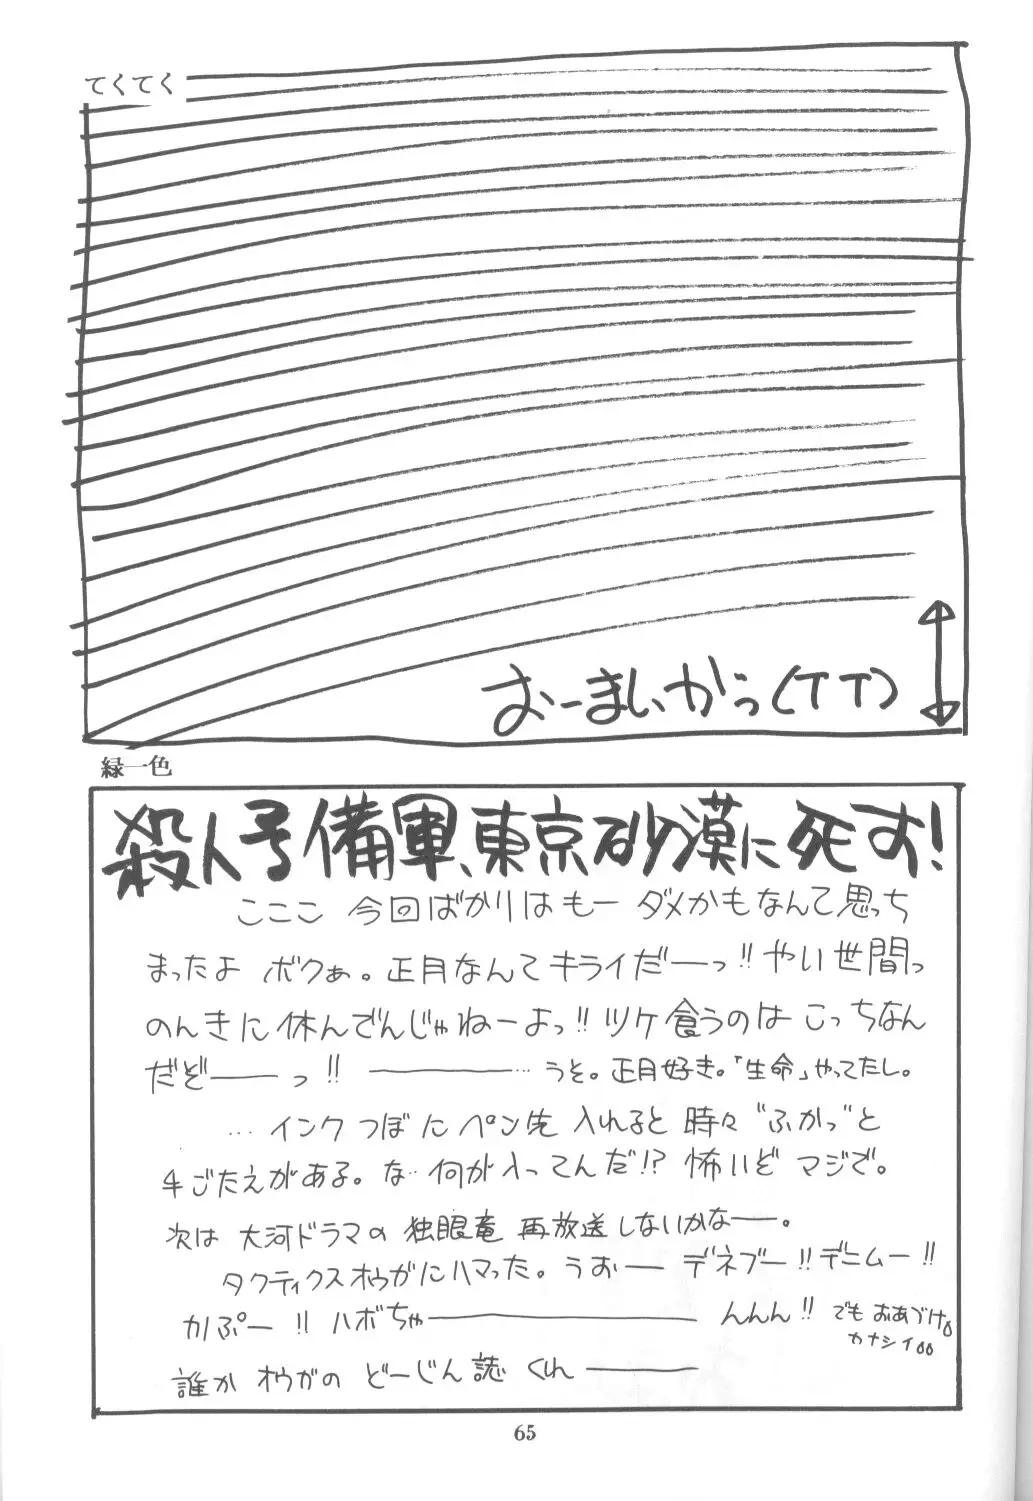 てくてく
おーまいがっ(TT)
緑一色
殺人号備軍、東京砂漠に死す!
こここ 今回ばかりはもー ダメかもなんて思っち
まったよ ボクぁ。正月なんてキライだーっ!!やい世間っ
のんきに休んでんじゃねーよっ!!ツケ食うのはこっちなん
だぞ――っ!! ――――…うそ。正月好き。「生命」やってたし。
…インクつぼにペン先 入れると 時々“ふかっ”と
手ごたえがある。な…何が入ってんだ!? 怖いどマジで。
次は 大河ドラマの 独眼竜 再放送しないかな――。
タクティクスオウガにハマった。うおー デネブー!!デニムー!!
カノぷー!!ハボちゃ――――――んんん!!でもおあづけ。
カナシイ。。
誰かオウガのどーじん誌くれ――――
65